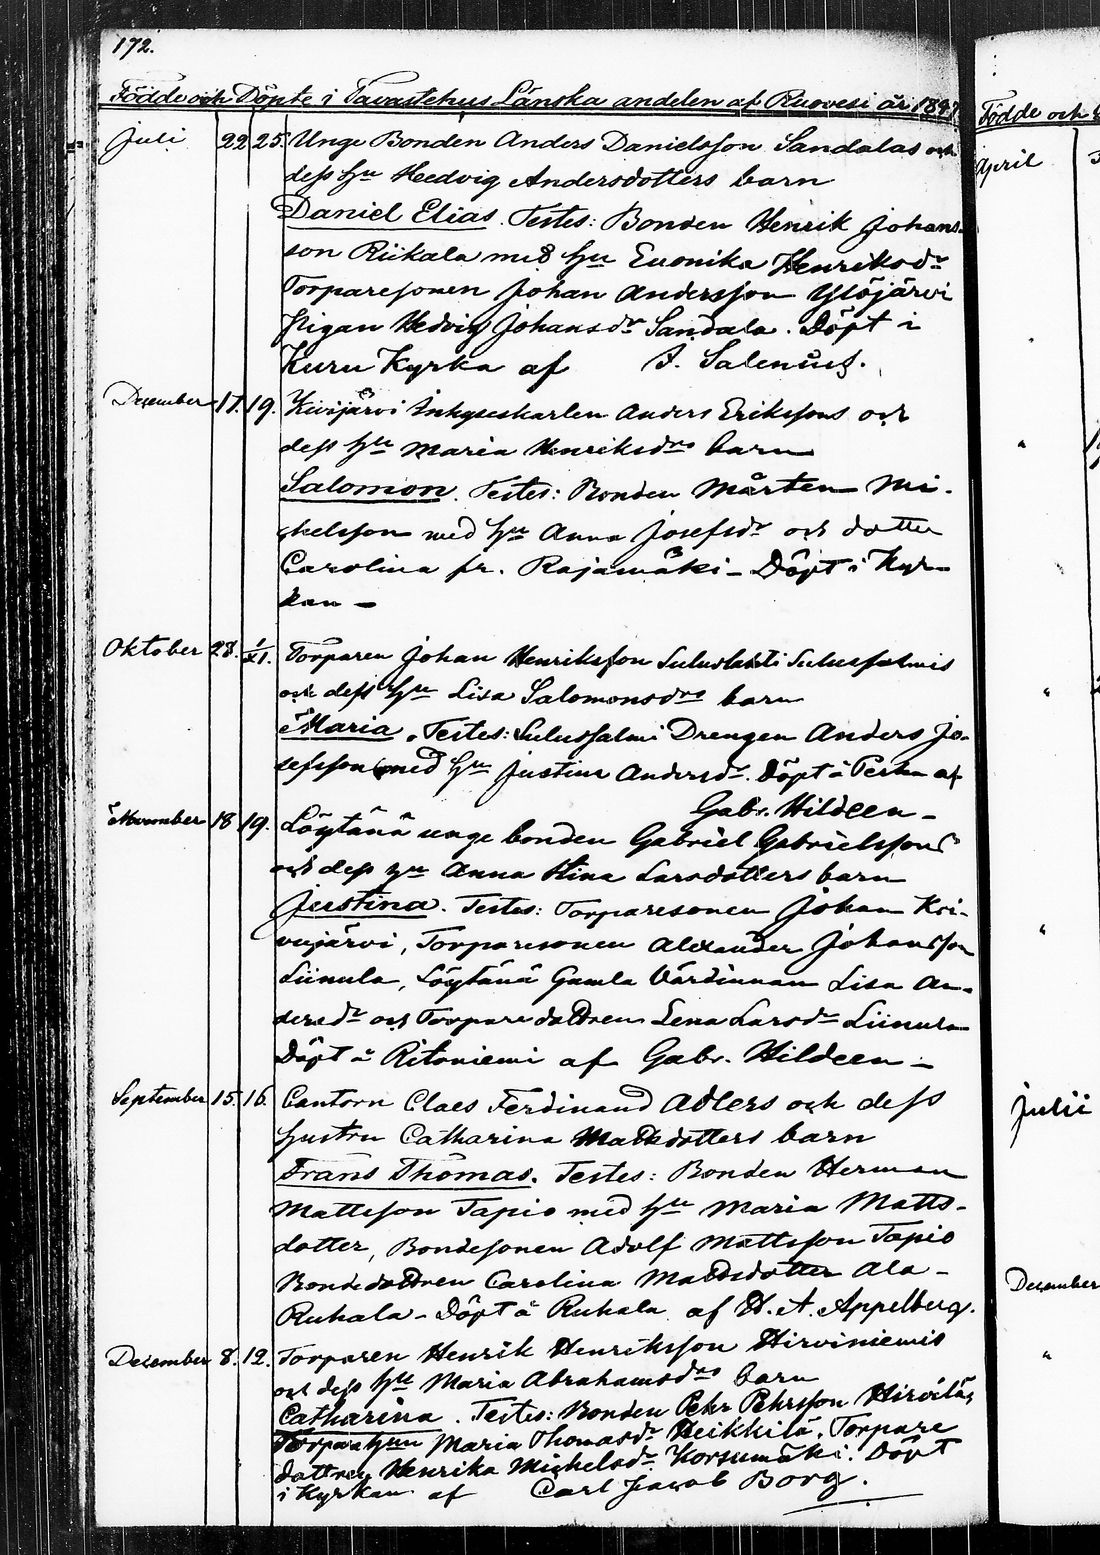 172.
Födde och Döpte i Tavastehus Länska andelen af Ruovesi år
Födde och
Juli 22 25. Unge Bonden Anders Danielsson Sandalas och
dess hu Hedvig Andersdotters barn
Daniel Elias. Testes: Bonden Henrik Johans-
son Riikala med hu Euonika Henriksdr
Torparesonen Johan Andersson Ylöjärvi
Pigan Hedvig Johansdr Sandala. Döpt i
Kuru Kyrka af J. Salenius.
December 17. 19. Kivijärvi Inhyseskarlen Anders Erikssons och
dess hu Maria Henriksdrs barn
Salomon. Testes: Bonden Mårten Mi-
chelsson med hu Anna Josefsdr och dotter
Carolina fr. Rajamäki - Döpt i Kyr-
kan -
Oktober 28. 1/XI. Torparen Johan Henriksson Sulusalmis
och dess hu Lisa Salomonsdrs barn
Maria. Testes: Sulusalmi Drengen Anders Jo-
sefsson med hu Justina Andersdr. Döpt å af
Gabr. Hildeen -
November 18 19. Löytänä unge bonden Gabriel Gabrielssons
och dess hu Anna Stina Larsdotters barn
Justina. Testes: Torparesonen Johan Koi-
vujärvi, Torparesonen Alexander Johansson
Liinula, Löytänä Gamla Värdinnan Lisa An-
dersdr och Torparedottren Lena Larsdr Liinula
Döpt å Ritoniemi af Gabr. Hildeen -
September 15. 16. Cantorn Claes Ferdinand Adlers och dess
hustru Catharina Mattsdotters barn
Frans Thomas. Testes: Bonden Herman
Mattsson Tapio med hu Maria Matts-
dotter, Bondesonen Adolf Mattsson Tapio
Bondedottren Carolina Mattsdotter Ala-
Ruhala - Döpt å Ruhala af H. A. Appelberg.
December 8. 12. Torparen Henrik Henriksson Hirviniemis
och dess hu Maria Abrahamsdrs barn
Catharina. Testes: Bonden Pehr Pehrsson Hirvilä,
Torpare hun Maria Thomasdr Heikkilä, Torpare
dottren Henrika Michelsdr Korsumäki. Döpt
i Kyrkan af Carl Jacob Borg.
April
Julii
December